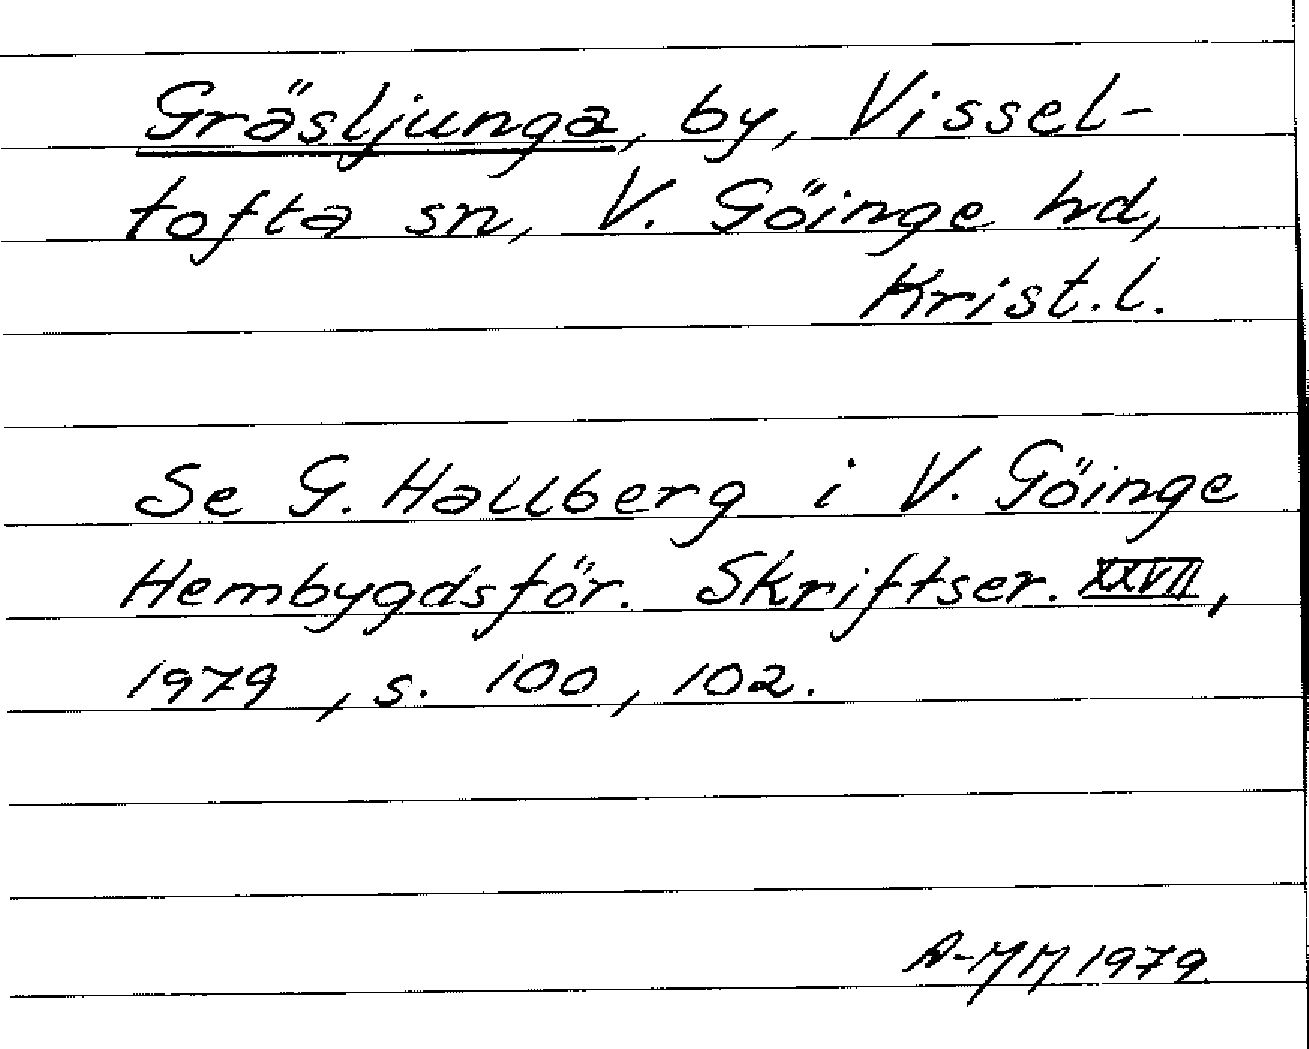 Gräsljunga, by, Vissel-
tofta sn, V. Göinge hd,
Krist.l.
Se G. Hallberg i V. Göinge
Hembygdsför. Skriftser. XXVII,
1979, s. 100, 102.
A-MM 1979